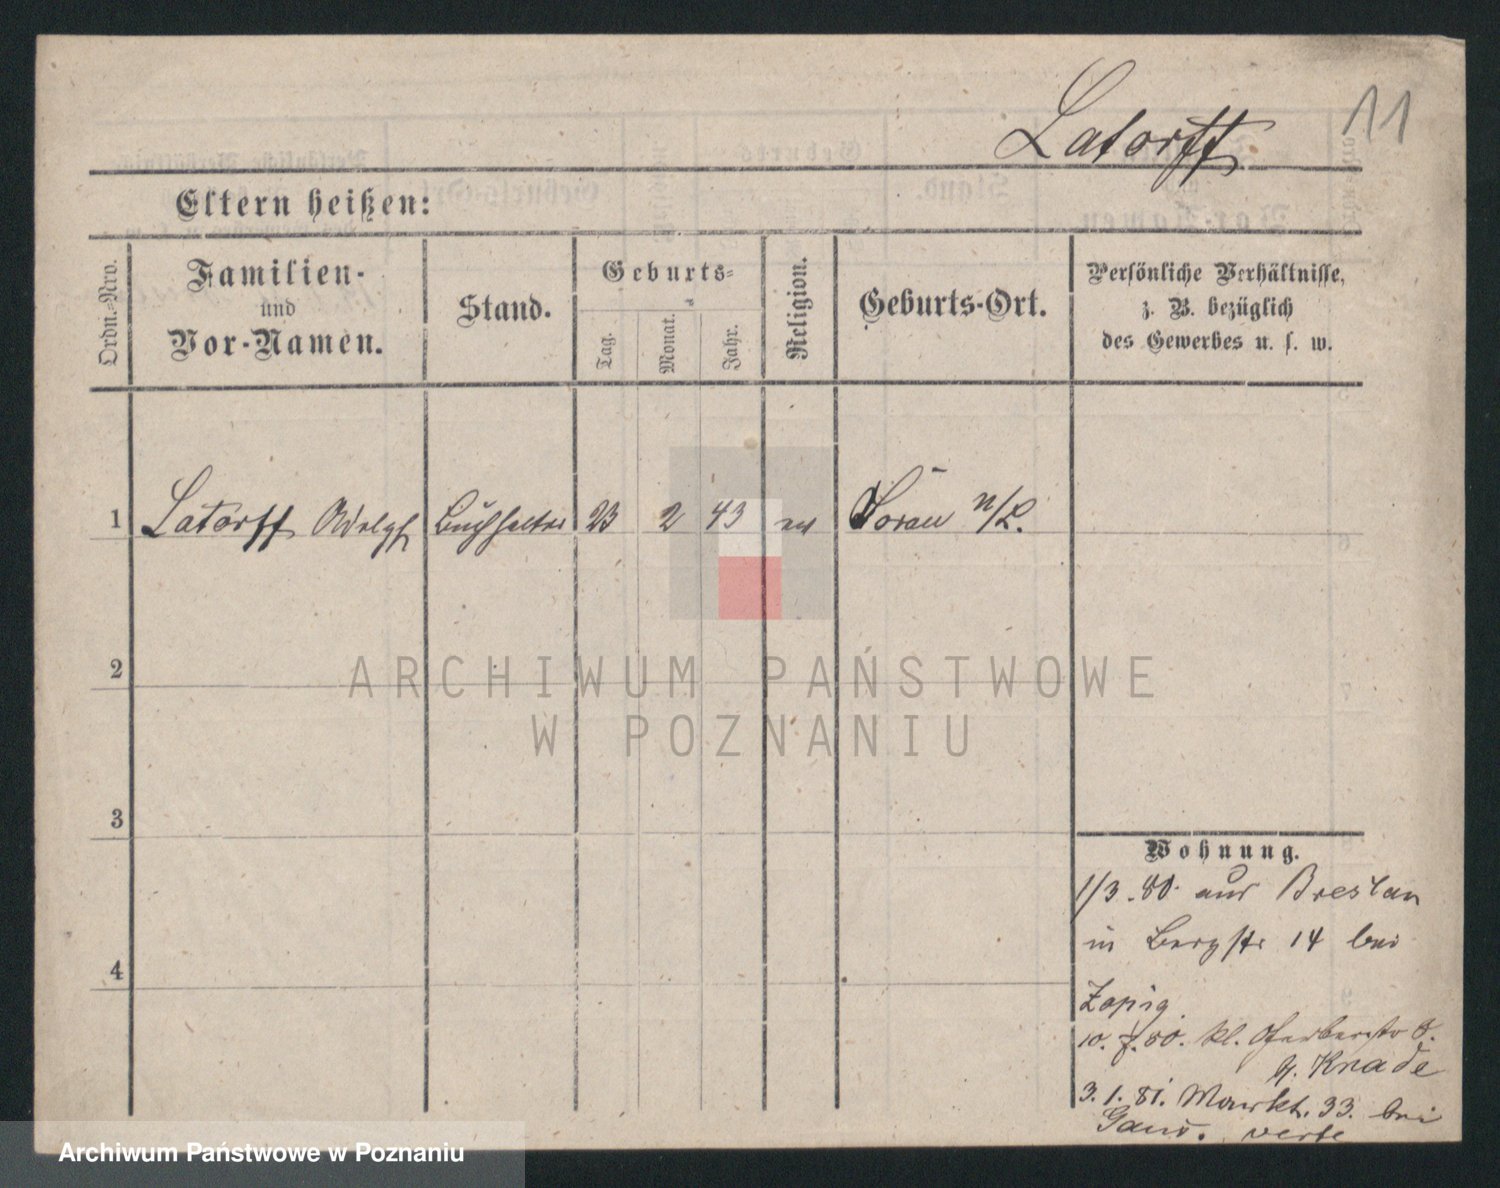 Latorff
11
Eltern heißen:
Ordn.-Nro.
Familien-
und
Vor-Namen.
Stand.
Geburts-
Tag.
Monat.
Jahr.
Religion.
Geburts-Ort.
Persönliche Verhältnisse,
z. B. bezüglich
des Gewerbes u. s. w.
1 Latorff Adolph Buchhalter 23 2 43 ev Sorau N/L.
2
3
4
ARCHIWUM PAŃSTWOWE
W POZNANIU
Wohnung.
1/3.80. aus Breslau
in Bergstr 14 bei
Zapig.
10. 7. 80. kl. 8.
Knade
3. 1. 81. Markt. 33. bei
verte
Archiwum Państwowe w Poznaniu